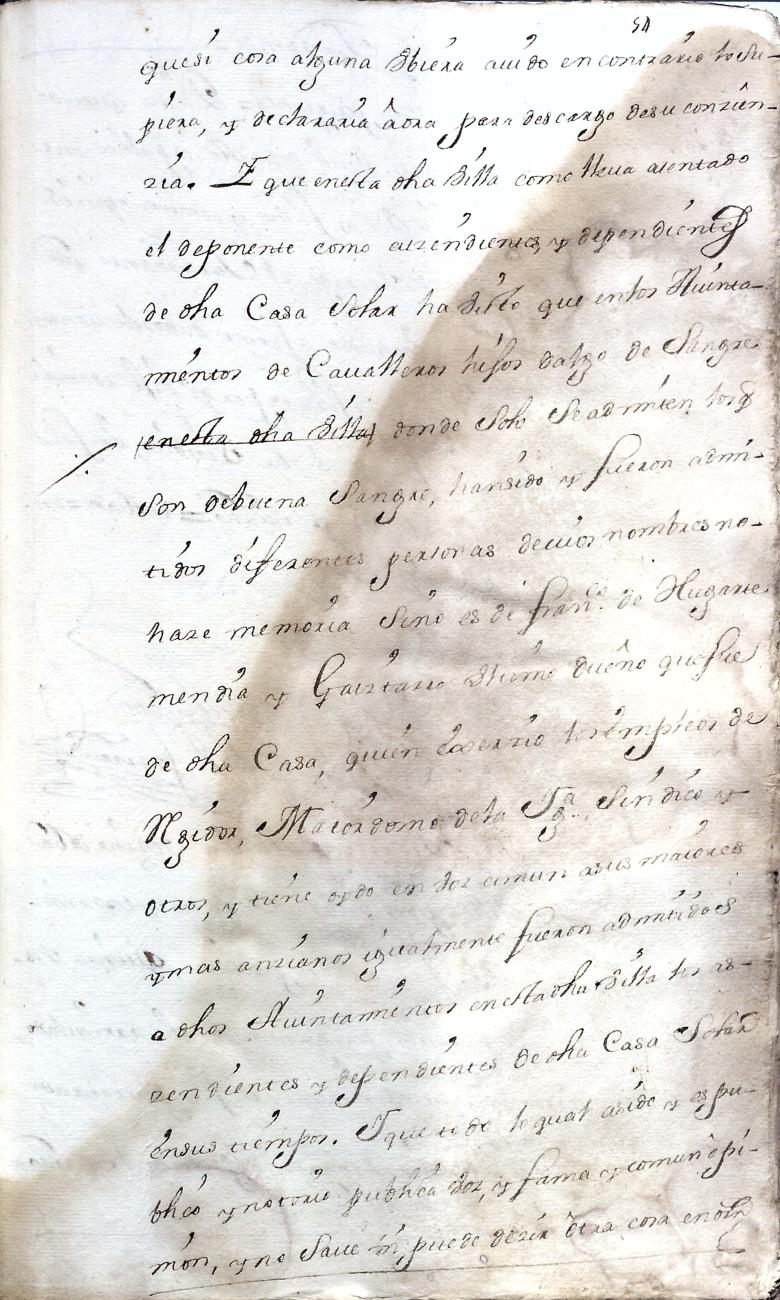 54
que si cosa alguna Vbiera auido en contrario lo su-
piera, y declararia âora para descargo de su conzien-
zia. I que en esta dha Villa como lleua asentado
el deponente como aszendientes, y dependientes
de dha Casa Solar ha visto que en los Aiunta-
mientos de Caualleros hijos dalgo de Sangre
(en esta dha Villa) donde Solo Se admiten los q
Son de buena Sangre, han sido y fueron admi-
tidos diferentes personas de cuios nombres no
haze memoria Sino es de franco de Hugarte
mendia y Gaiztarro Vltimo dueño que fue
de dha Casa, quien êxerzio los êmpleos de
Rgidor, Maiordomo de la Iga, Sindico y
otros, y tiene oydo en voz comun a sus maiores
y mas anzianos igualmente fueron admitidos
a dhos Aiuntamientos en esta dha Villa los as-
zendientes y dependientes de dha Casa Solar
en sus tiempos. I que todo lo qual a sido y es pu-
blico y notorio publica voz, y fama y comun opi-
nion, y no Saue ni puede dezir ôtra cosa en